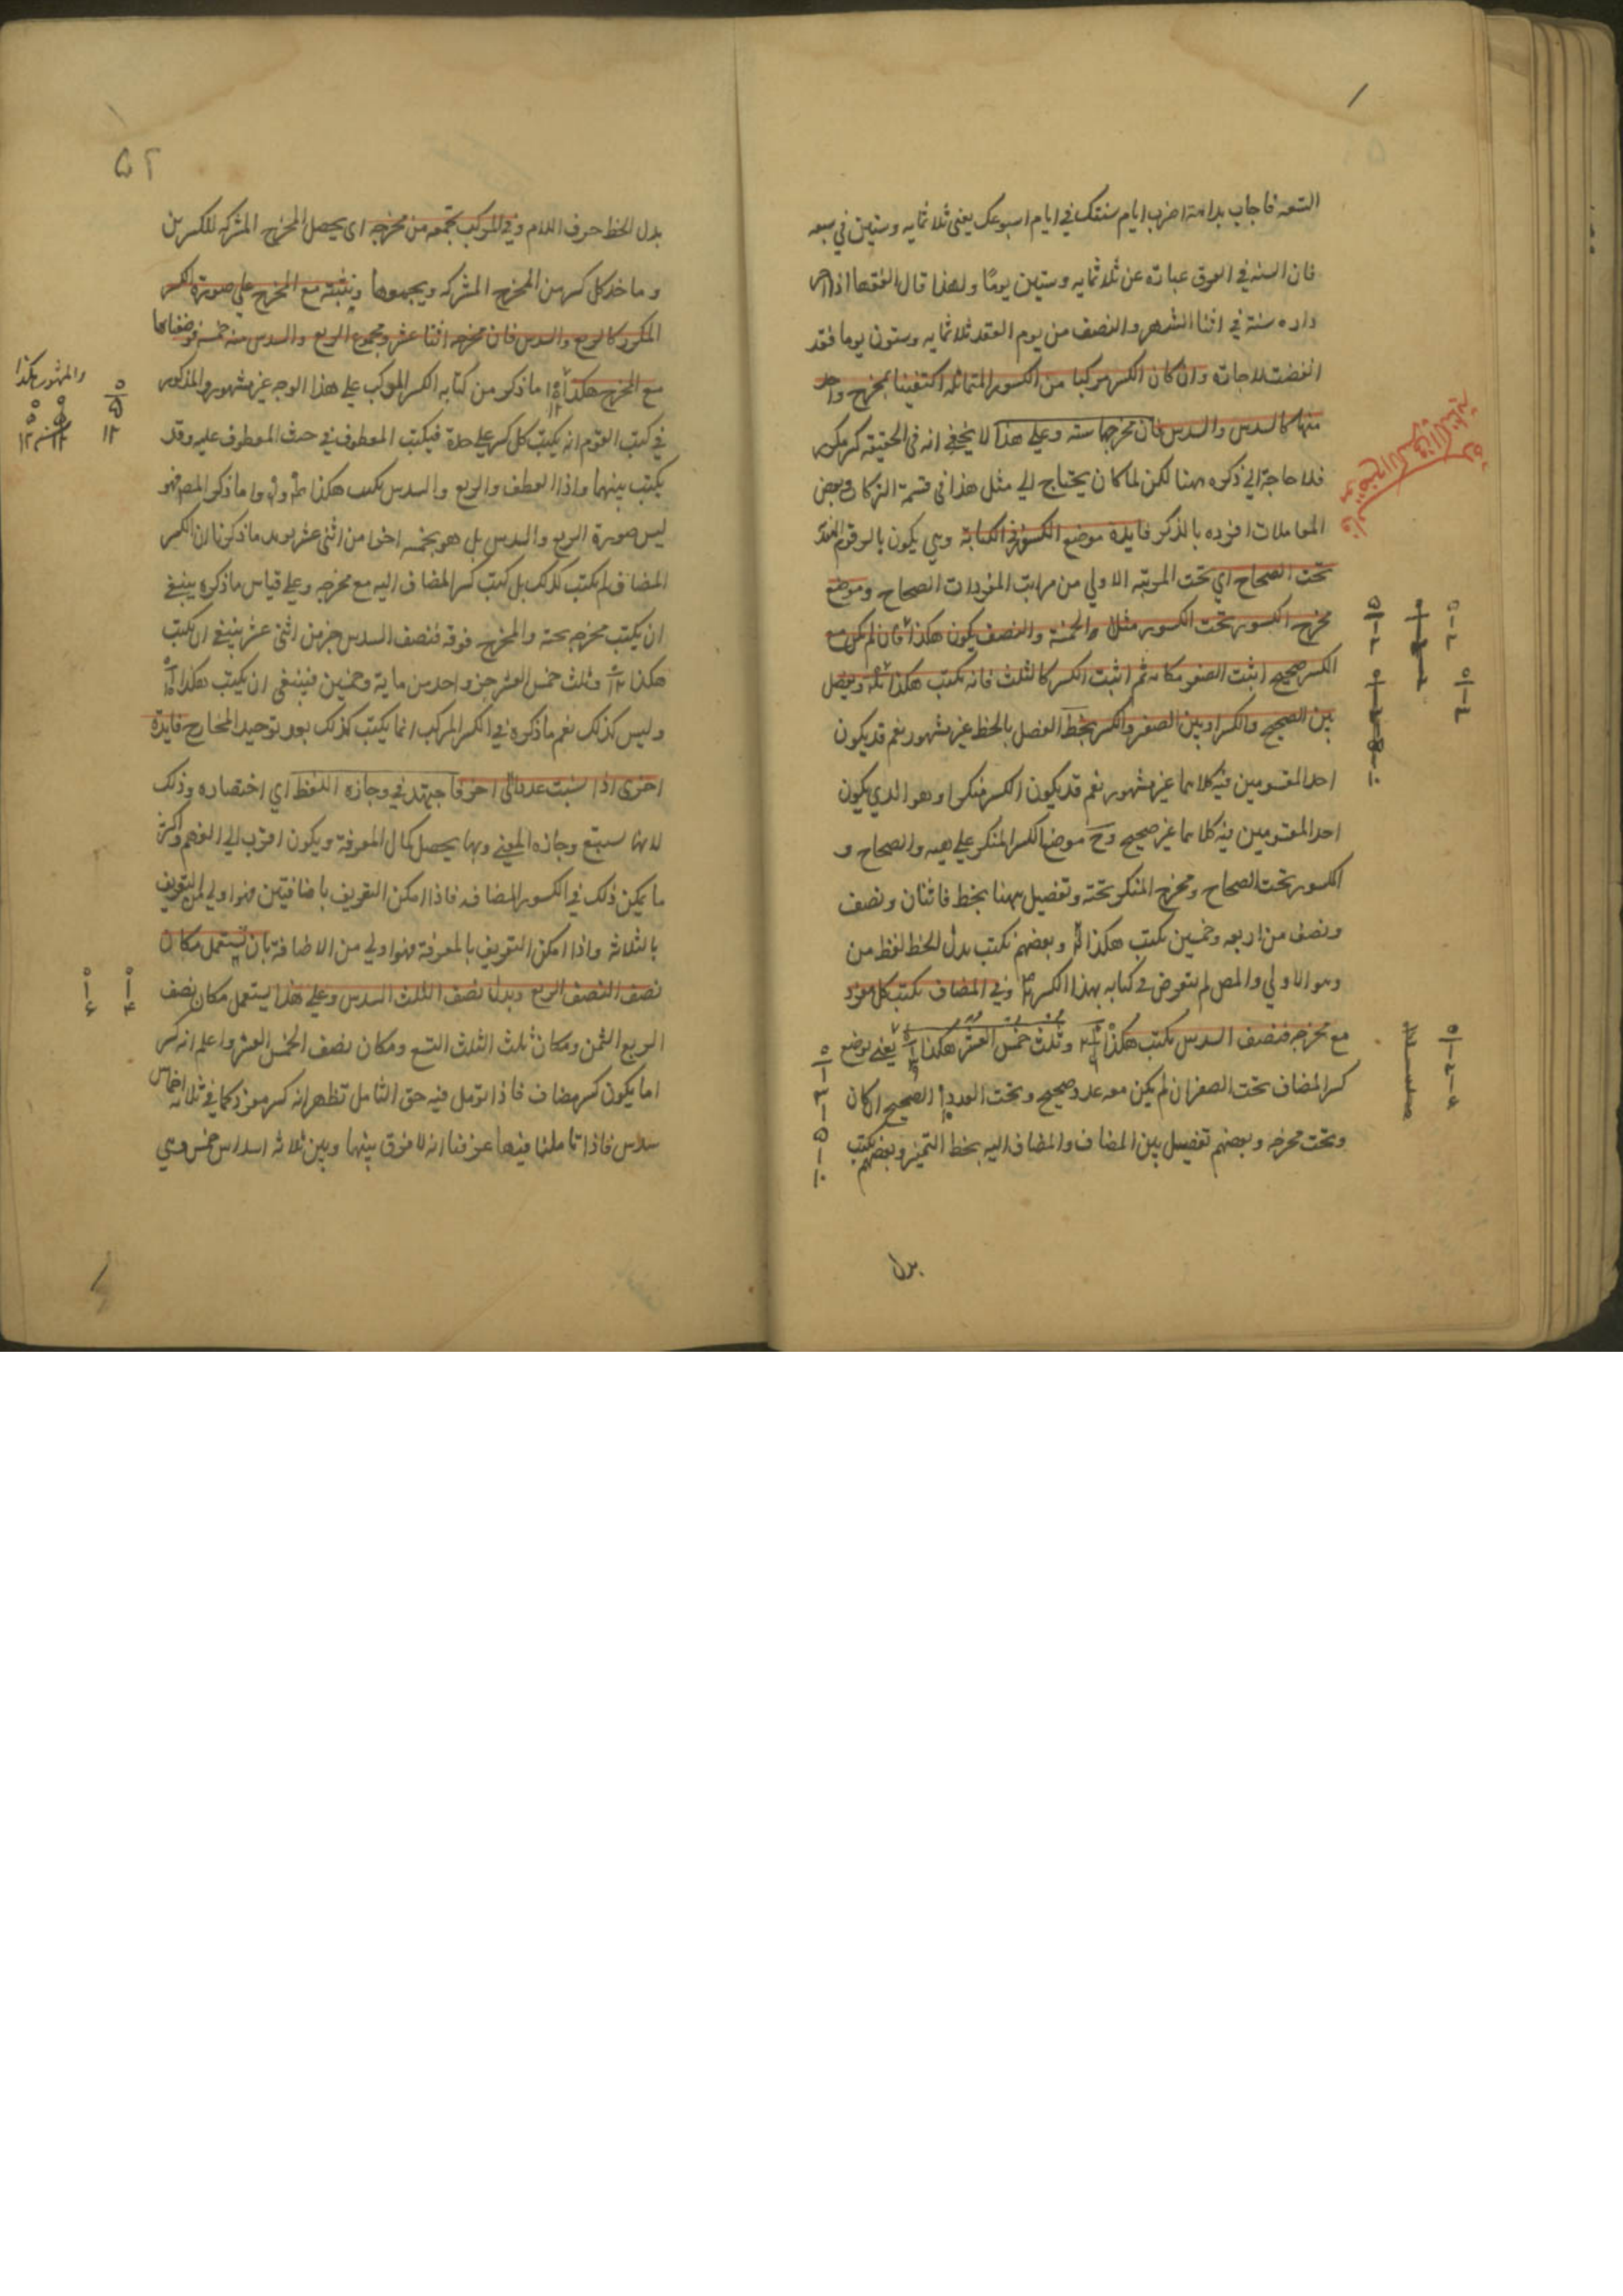 التسعه فاجاب بداهة اضرب ايام سنتك في ايام اسبوعك يعنى ثلاثمايه وستين في سبعه
فان السنه في العرف عبارة عن ثلاثمايه وستين يومًا ولهذا قال الفقها اذا اجر
داره سنة في اثنا الشهر والنصف من يوم العقد ثلاثمايه وستون يوما فقد
انقضت الاجاره وان كان الكسر مركبا من الكسور المتماثله اكتفينا بمخرج واحد
منها كالسدس والسدس فان مخرجهما سته وعلى هذا لا يخفى انه في الحقيقه كسر مكرر
فلا حاجة الى ذكره ههنا لكن لما كان يحتاج الى مثل هذا في قسمة التركات وبعض
المعاملات افرده بالذكر فايدة موضع الكسور في الكتابة وهي يكون بالرقوم الهنديه
تحت الصحاح اي تحت المرتبه الاولي من مراتب المفردات الصحاح وموضع
مخرج الكسور تحت الكسور مثلا والخمسة والنصف يكون هكذا فان لم يكن مع
الكسر صحيح اثبت الصفر مكانه ثم اثبت الكسر كالثلث فانه يكتب هكذا ويفصل
بين الصحيح والكسر او بين الصفر والكسر بخط الفصل بالخط غير مشهور نعم قد يكون
احد المقسومين فيه كلاهما غير مشهور نعم قد يكون الكسر منكسرا وهو الذي يكون
احد المقسومين فيه كلاهما غير صحيح وح موضع الكسر المنكسر على هيئه والصحاح و
الكسور تحت الصحاح ومخرج المنكسر تحته وتفصيل ههنا بخط فاثنان ونصف
ونصف من اربعه وخمسين يكتب هكذا وبعضهم يكتب بدل الخط لفظ من
وهو الاولي والمص لم يتعرض في كتابه بهذا الكسر وفي المضاف يكتب كل مفرد
مع مخرجه فنصف السدس يكتب هكذا وثلث خمس العشر هكذا يعنى يوضع
كسر المضاف تحت الصفر ان لم يكن معه عدد صحيح وتحت العدد الصحيح ان كان
وتحت مخرجه وبعضهم تفصيل بين المضاف والمضاف اليه بخط التميز وبعضهم يكتب
بدل
٥٢
بدل الخط حرف اللام وفي المركب تجمعه من مخرجه اى يحصل المخرج المشركه للكسرين
وماخذ كل كسر من المخرج المشركه ويجمعوها ويثبته مع المخرج على صورة الكسر
المكرر كالربع والسدس فان مخرجه اثنا عشر ومجموع الربع والسدس منه خمسة
مع المخرج هكذا ما ذكر من كتابه الكسر المركب على هذا الوجه غير مشهور والمذكور
في كتب القوم انه يكتب كل كسر على حدة فيكتب المعطوف في حرف المعطوف عليه وقد
يكتب بينهما واذا العطف والربع والسدس يكتب هكذا واما ذكر المص فهو
ليس صورة الربع والسدس بل هو بخمسه اجزا من اثنى عشر بويد ما ذكرنا ان الكسر
المضاف لم يكتب كذلك بل كتب كسر المضاف اليه مع مخرجه وعلى قياس ما ذكره ينبغي
ان يكتب مخرجه تحته والمخرج فوقه فنصف السدس جز من اثنى عشر ينبغي ان يكتب
هكذا وثلث خمس العشر جز واحد من ماية وخمسين فينبغى ان يكتب هكذا
وليس كذلك نعم ما ذكره في الكسر المركب انما يكتب كذلك بعد توحيد المخارج فايدة
اخرى اذا نسبت عددا الى اخر فاجتهد في وجازه اللفظ اي اختصاره وذلك
لانها ستتبع وجازه المعنى وبها يحصل كمال المعرفة ويكون اقرب الى الفهم واكثر
ما يمكن ذلك في الكسور المضافه فاذا امكن التعريف باضافتين فهو اولى من التعريف
بالثلاثه واذا امكن التعريف بالمعرفة فهو اولى من الاضافة بان يستعمل مكان
نصف النصف الربع وبدل نصف الثلث السدس وعلى هذا يستعمل مكان نصف
الربع الثمن ومكان ثلث الثلث التسع ومكان نصف الخمس العشر واعلم انه كسر
اما يكون كسر مضاف فاذا تومل فيه حق التامل تظهر انه كسر مفرد كما في ثلاثه اخماس
سدس فاذا تاملنا فيها عرفنا انه لا فرق بينها وبين ثلاثه اسداس خمس وهي
والمشهور هكذا